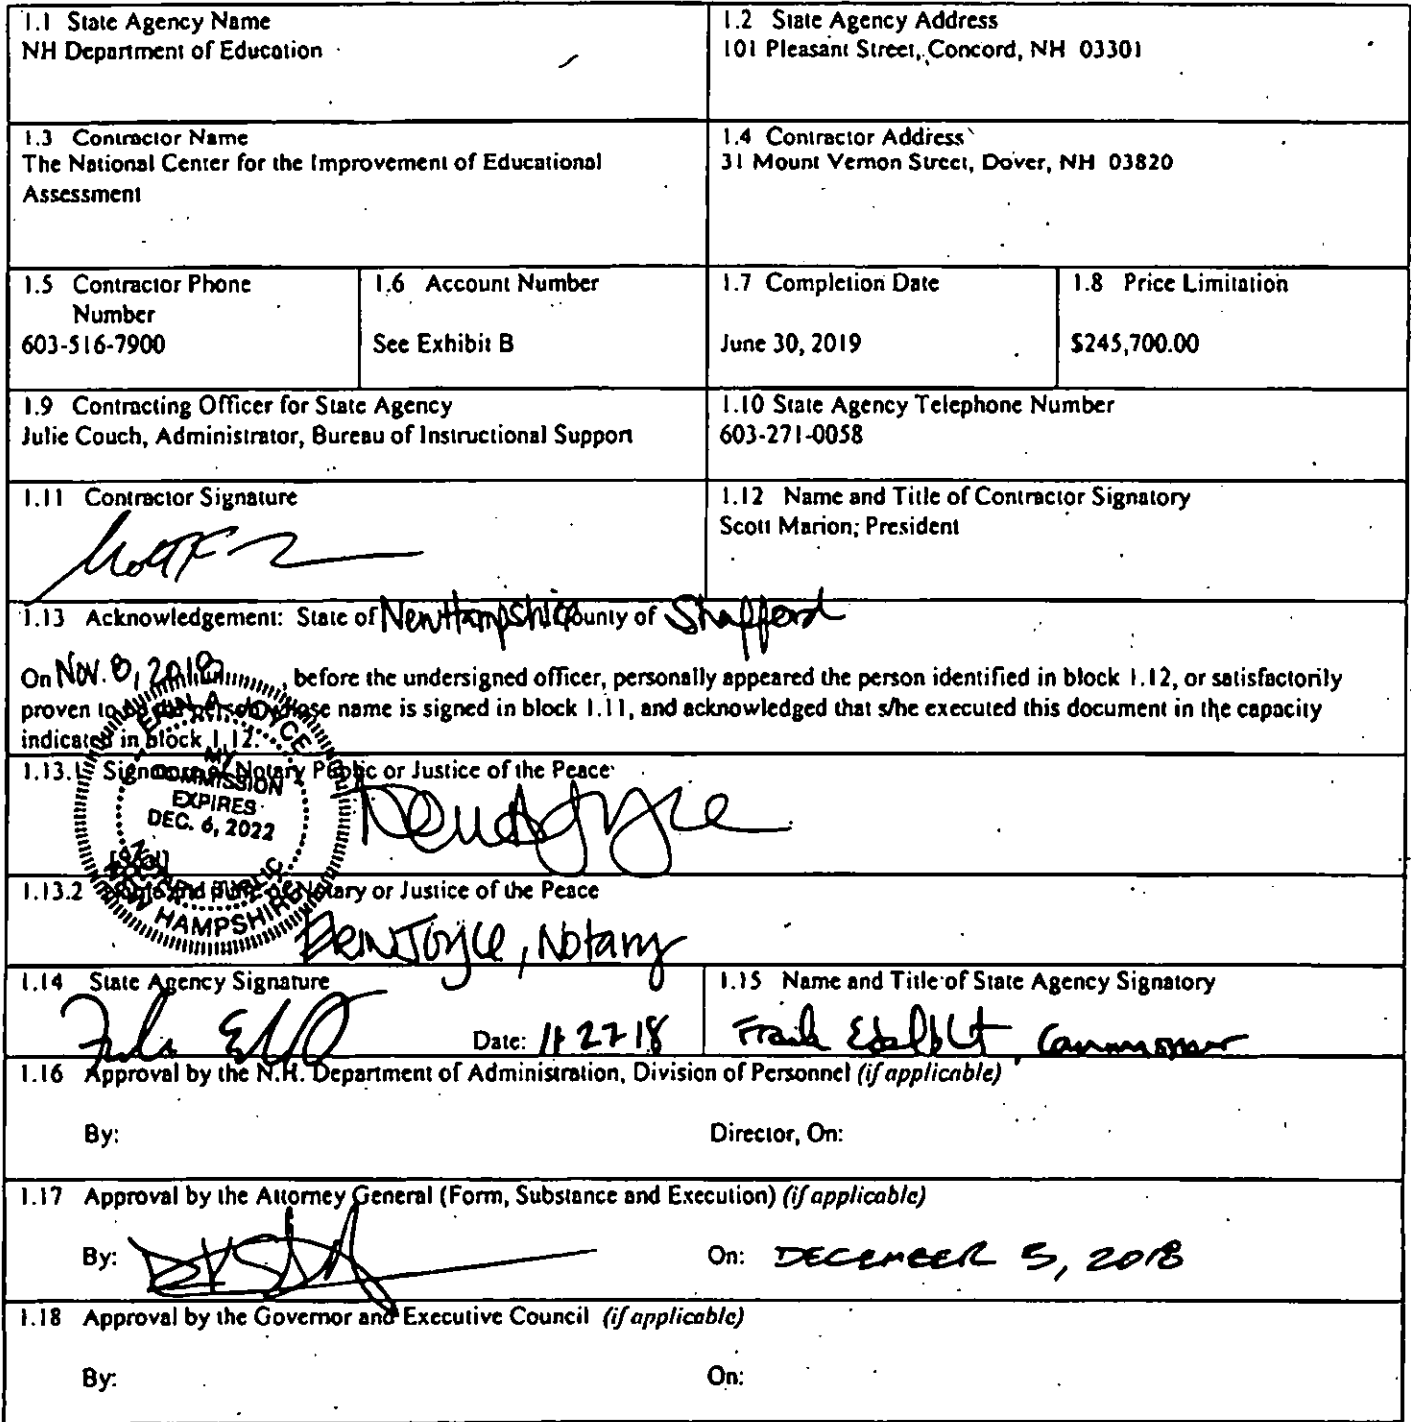 1.1 State Agency Name
NH Department of Education
1.2 State Agency Address
101 Pleasant Street, Concord, NH 03301
1.3 Contractor Name
The National Center for the Improvement of Educational
Assessment
1.4 Contractor Address
31 Mount Vernon Street, Dover, NH 03820
1.5 Contractor Phone
Number
603-516-7900
1.6 Account Number
See Exhibit B
1.7 Completion Date
June 30, 2019
1.8 Price Limitation
$245,700.00
1.9 Contracting Officer for State Agency
Julie Couch, Administrator, Bureau of Instructional Support
1.10 State Agency Telephone Number
603-271-0058
1.11 Contractor Signature
1.12 Name and Title of Contractor Signatory
Scott Marion, President
1.13 Acknowledgement: State of New Hampshire County of Strafford
On Nov. 8, 2018, before the undersigned officer, personally appeared the person identified in block 1.12, or satisfactorily
proven to be the person whose name is signed in block 1.11, and acknowledged that s/he executed this document in the capacity
indicated in block 1.12.
1.13.1 Signature of Notary Public or Justice of the Peace
ERIN A. JOYCE
MY
COMMISSION
EXPIRES
DEC. 6, 2022
[Seal]
NOTARY PUBLIC
NEW HAMPSHIRE
1.13.2 Name and Title of Notary or Justice of the Peace
Erin Joyce, Notary
1.14 State Agency Signature
Date: 11-27-18
1.15 Name and Title of State Agency Signatory
Frank Edelblut, Commissioner
1.16 Approval by the N.H. Department of Administration, Division of Personnel (if applicable)
By:
Director, On:
1.17 Approval by the Attorney General (Form, Substance and Execution) (if applicable)
By:
On: DECEMBER 5, 2018
1.18 Approval by the Governor and Executive Council (if applicable)
By:
On: